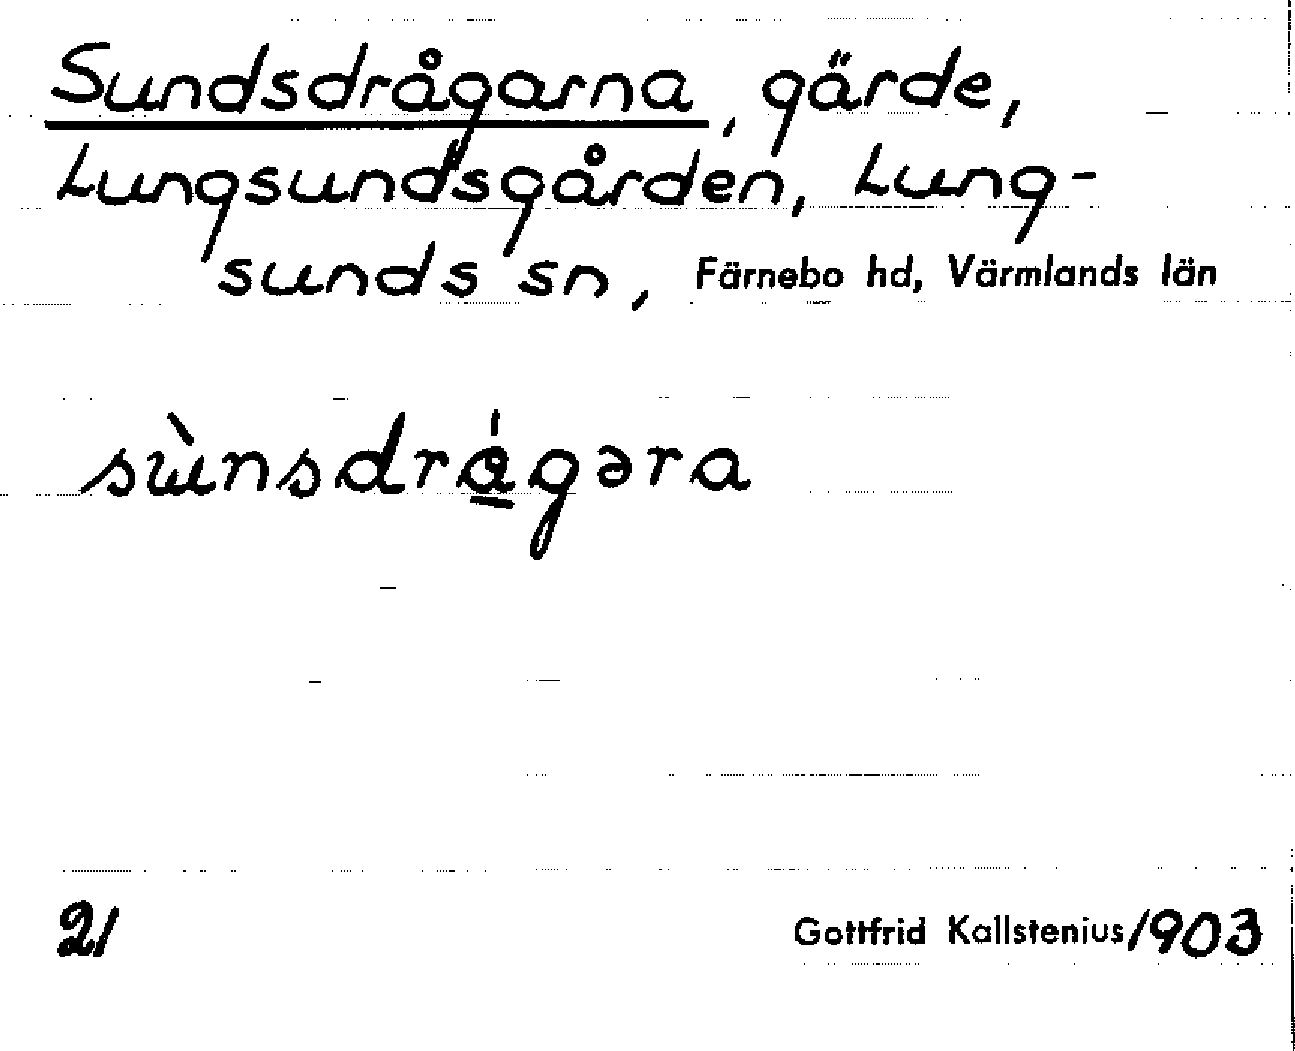 Sundsdrågarna, gärde,
Lungsundsgården, Lung-
sunds sn, Färnebo hd, Värmlands län
sùnsdrágəra
21 Gottfrid Kallstenius 1903